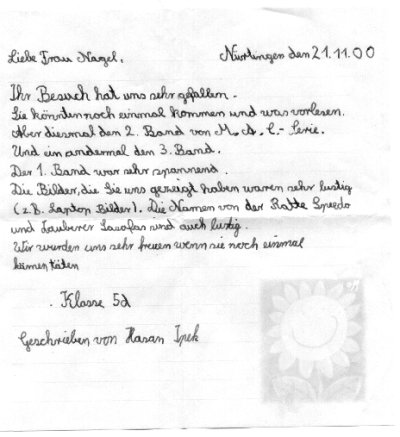 Liebe Frau Nagel, Nürtingen den 21.11.00
Ihr Besuch hat uns sehr gefallen.
Sie könnten noch einmal kommen und was vorlesen.
Aber diesmal den 2. Band von M.A.C.-Serie.
Und ein andermal den 3. Band.
Der 1. Band war sehr spannend.
Die Bilder, die Sie uns gezeigt haben waren sehr lustig
(z.B. Laptop Bilder). Die Namen von der Ratte Speedo
und Zauberer sind auch lustig.
Wir würden uns sehr freuen wenn sie noch einmal
Klasse 5d
Geschrieben von Hasan Ipek